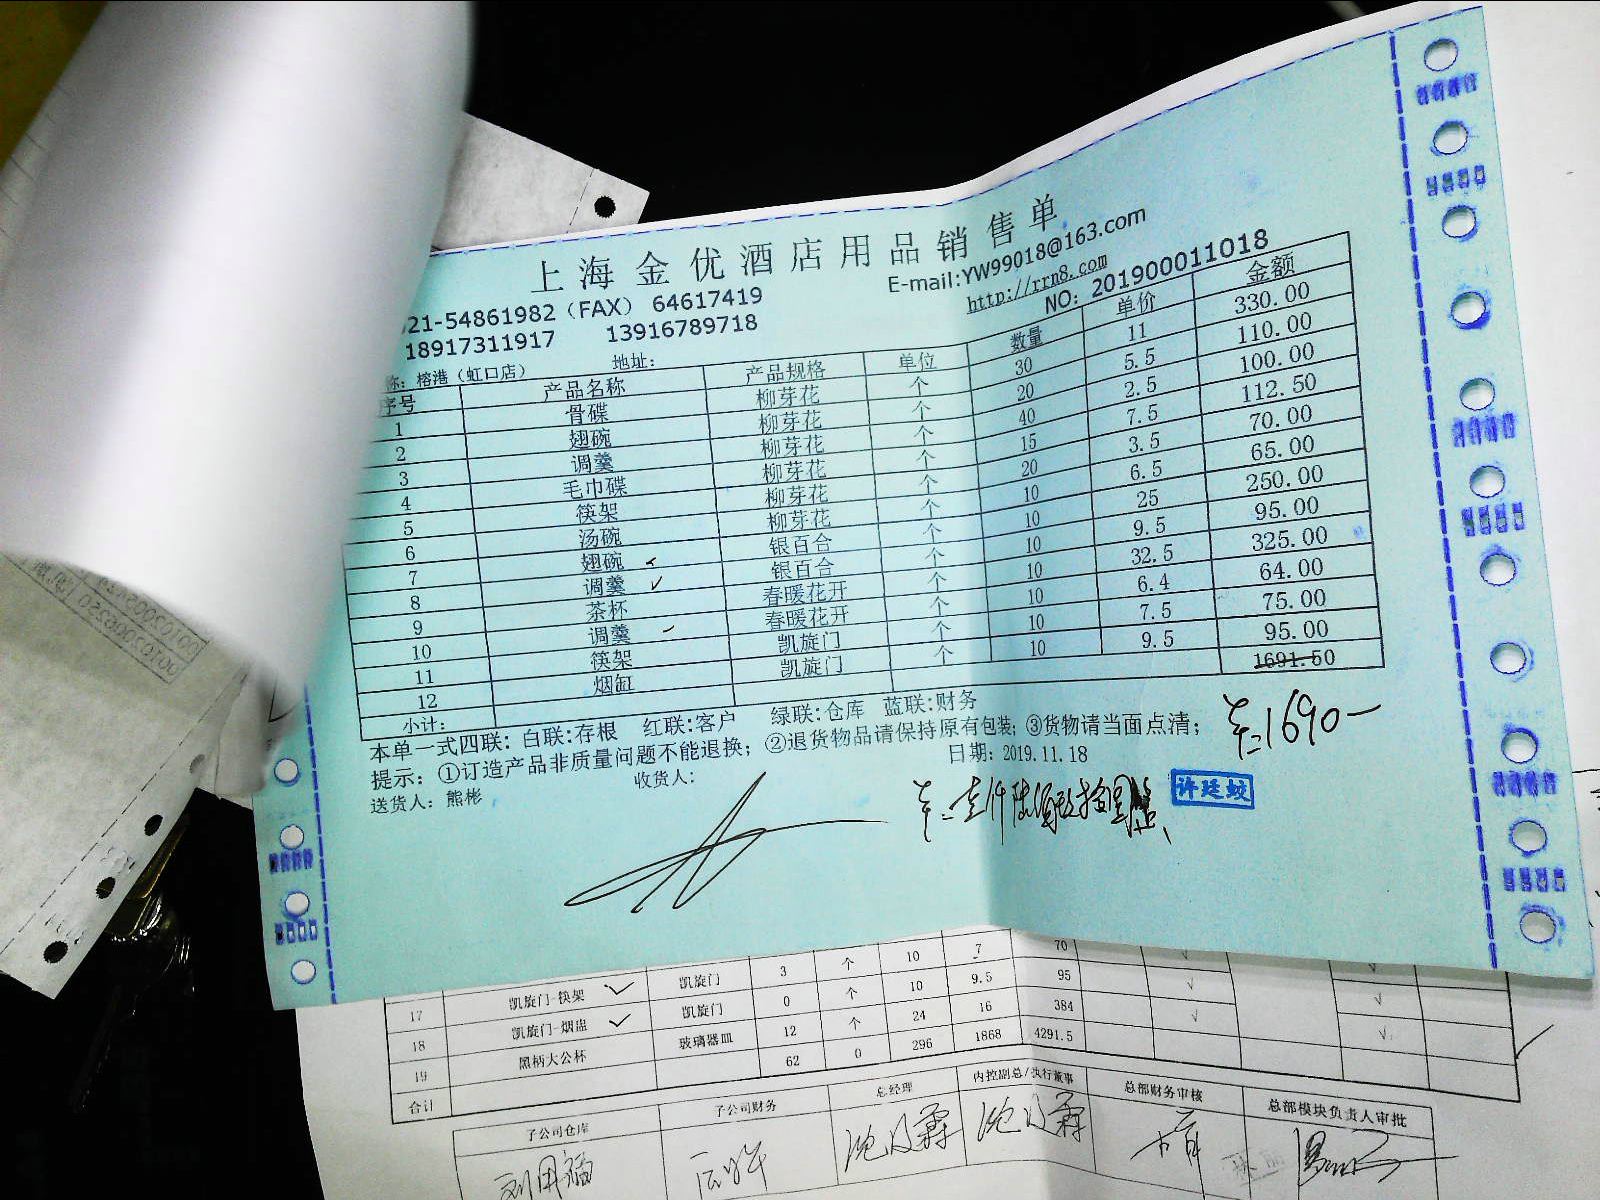 上海金优酒店用品销售单
21-54861982（FAX） 64617419 E-mail:YW99018@163.com
18917311917 13916789718 http://rrn8.com
称: 榕港（虹口店） 地址: NO: 201900011018
序号 产品名称 产品规格 单位 数量 单价 金额
1 骨碟 柳芽花 个 30 11 330.00
2 翅碗 柳芽花 个 20 5.5 110.00
3 调羹 柳芽花 个 40 2.5 100.00
4 毛巾碟 柳芽花 个 15 7.5 112.50
5 筷架 柳芽花 个 20 3.5 70.00
6 汤碗 柳芽花 个 10 6.5 65.00
7 翅碗 银百合 个 10 25 250.00
8 调羹 银百合 个 10 9.5 95.00
9 茶杯 春暖花开 个 10 32.5 325.00
10 调羹 春暖花开 个 10 6.4 64.00
11 筷架 凯旋门 个 10 7.5 75.00
12 烟缸 凯旋门 个 10 9.5 95.00
小计: 1691.50
本单一式四联: 白联:存根 红联:客户 绿联:仓库 蓝联:财务
提示: ①订造产品非质量问题不能退换; ②退货物品请保持原有包装; ③货物请当面点清;
1690
送货人: 熊彬 收货人: 日期: 2019.11.18
许廷蛟
70
17 凯旋门-筷架 凯旋门 3 个 10 7
18 凯旋门-烟盅 凯旋门 0 个 10 9.5 95
19 黑柄大公杯 玻璃器皿 12 个 24 16 384
合计 62 0 296 1868 4291.5
子公司仓库 子公司财务 总经理 内控副总/执行董事 总部财务审核 总部模块负责人审批